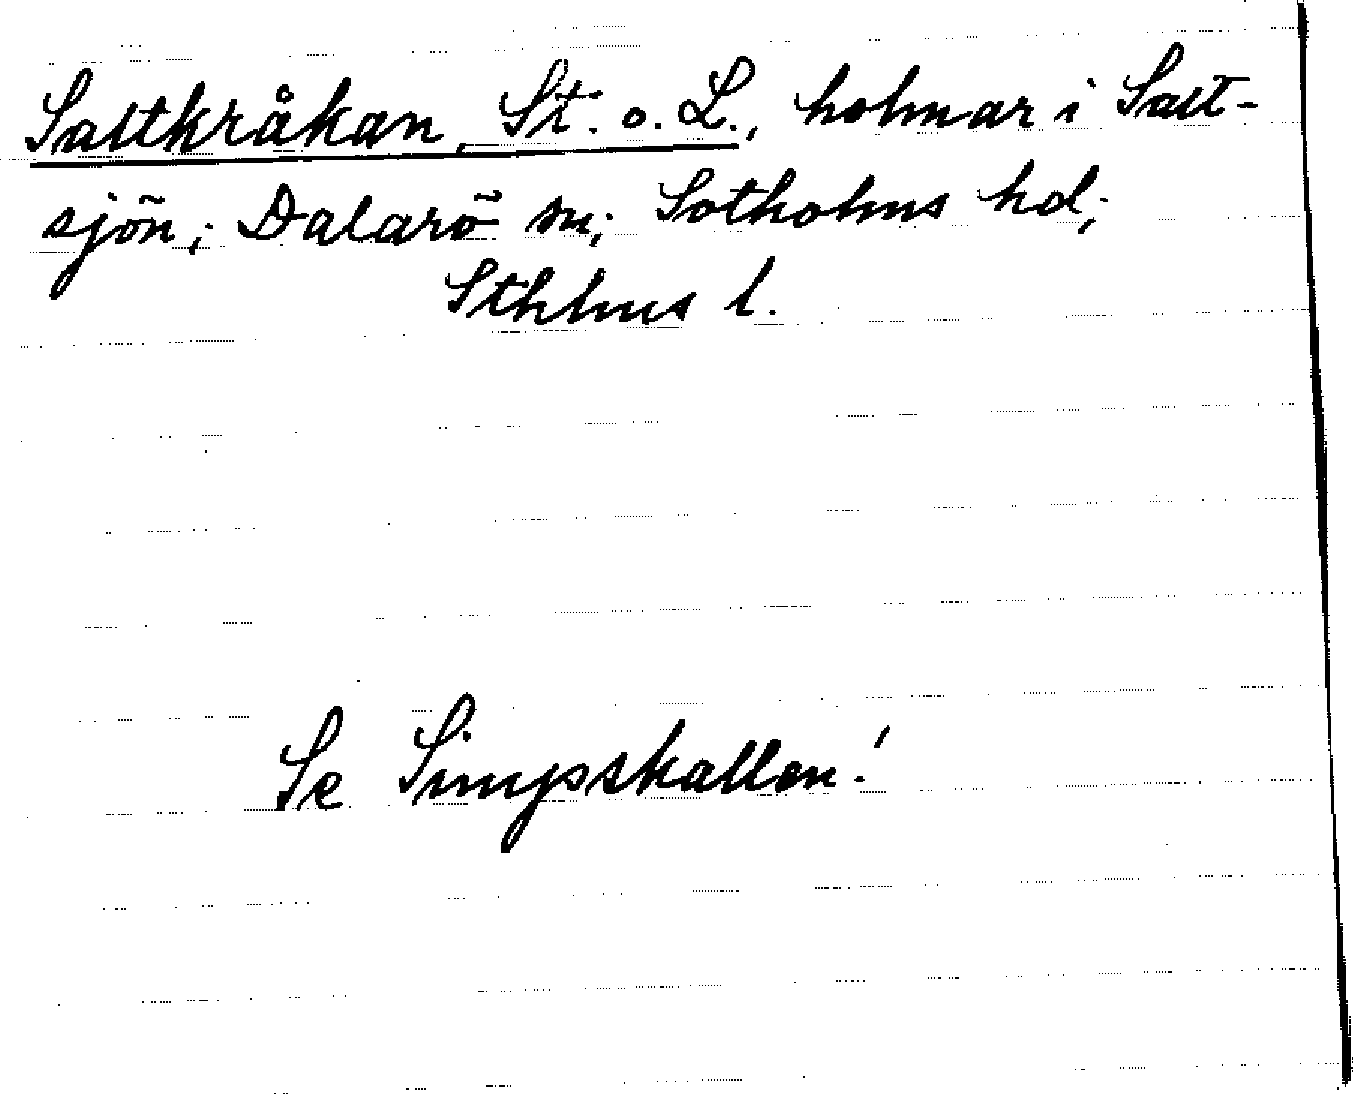 Saltkråkan, St. o. L., holmar i Salt-
sjön; Dalarö sn; Sotholms hd;
Sthlms l.
Se Simpskallen!